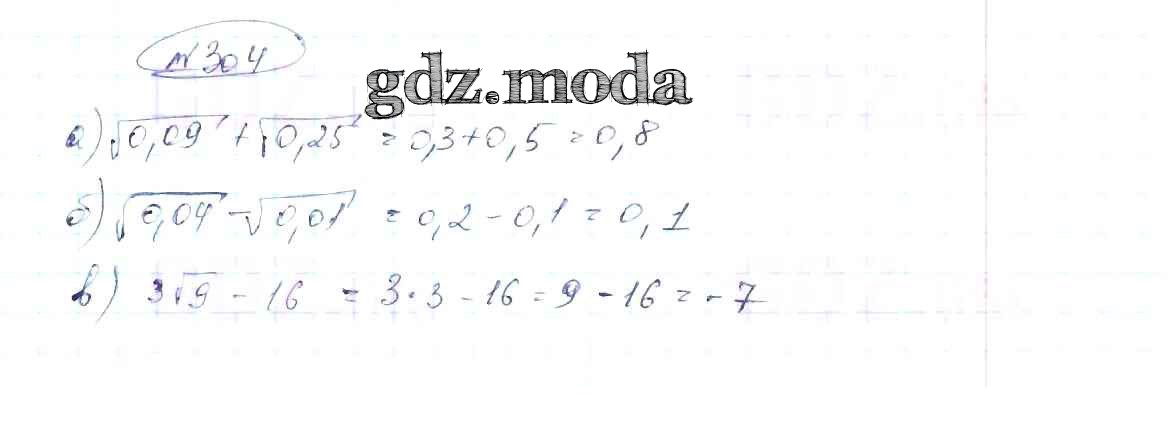 № 304
gdz.moda
а) √0,09 + √0,25 = 0,3 + 0,5 = 0,8
б) √0,04 - √0,01 = 0,2 - 0,1 = 0,1
в) 3√9 - 16 = 3·3 - 16 = 9 - 16 = -7